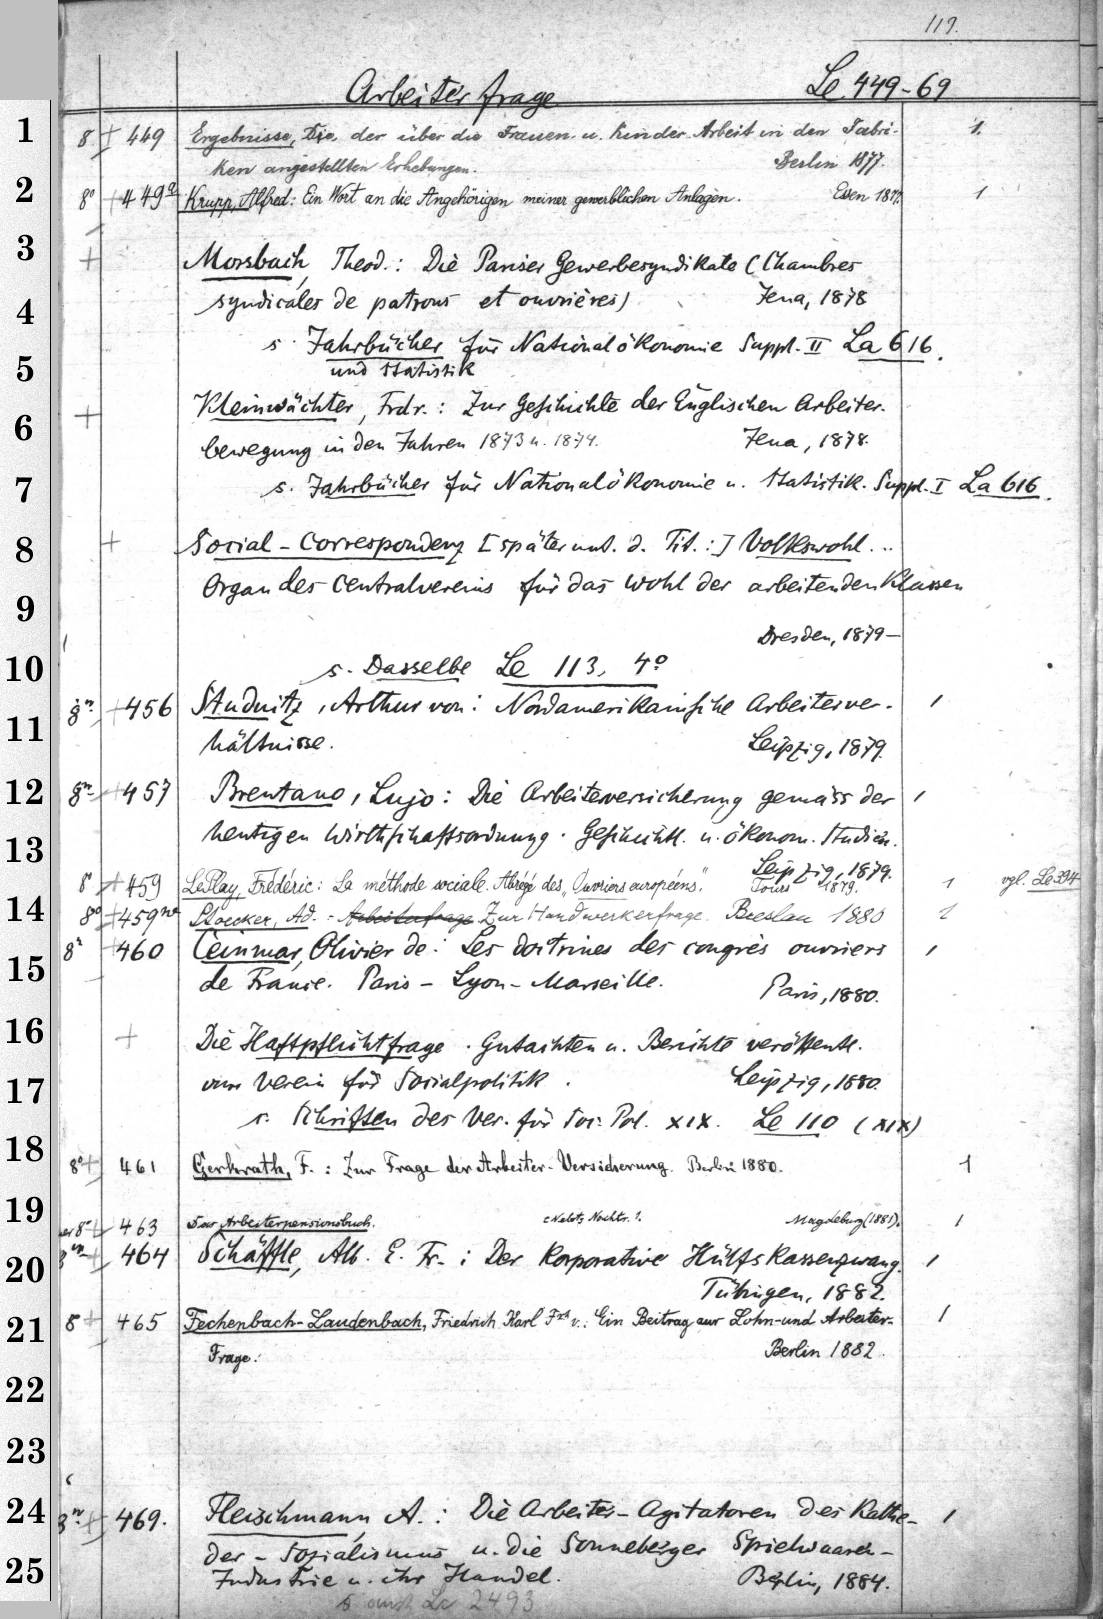 119.
Arbeiterfrage Le 449-69
1 8 + 449 Ergebnisse, Die, der über die Frauen- u. Kinder-Arbeit in den Fabri- 1.
ken angestellten Erhebungen. Berlin 1877.
2 8° + 449a Krupp, Alfred: Ein Wort an die Angehörigen meiner gewerblichen Anlagen. Essen 1877. 1
3 + Morsbach, Theod.: Die Pariser Gewerbesyndikate (Chambres
4 syndicales de patrons et ouvrières) Jena, 1878
s. Jahrbücher für Nationalökonomie Suppl. II La 616.
5 und Statistik
6 + Kleinwächter, Frdr.: Zur Geschichte der Englischen Arbeiter-
bewegung in den Jahren 1873 u. 1874. Jena, 1878.
7 s. Jahrbücher für Nationalökonomie u. Statistik. Suppl. I La 616.
8 + Social-Correspondenz [später unt. d. Tit.:] Volkswohl...
9 Organ des Centralvereins für das Wohl der arbeitenden Klassen
Dresden, 1879-
10 s. Dasselbe Le 113, 4°
11 + 456 Studnitz, Arthur von: Nordamerikanische Arbeiterver- 1
hältnisse. Leipzig, 1879.
12 + 457 Brentano, Lujo: Die Arbeiterversicherung gemäss der 1
13 heutigen Wirthschaftsordnung. Geschichtl. u. ökonom. Studien.
Leipzig, 1879.
8° + 459 Le Play, Frédéric: La méthode sociale. Abrégé des „Ouvriers européens". Tours 1879. 1 vgl. Le 394
14 8° + 459 Stoecker, Ad. - Arbeiterfrage Zur Handwerkerfrage. Breslau 1880 1
15 8° + 460 Ceinmar, Olivier de: Les doctrines des congrès ouvriers 1
de France. Paris - Lyon - Marseille. Paris, 1880.
16 + Die Haftpflichtfrage. Gutachten u. Berichte veröffentl.
17 vom Verein für Socialpolitik. Leipzig, 1880.
s. Schriften des Ver. für Soc. Pol. XIX. Le 110 (XIX)
18 8° + 461 Gerkrath, F.: Zur Frage der Arbeiter-Versicherung. Berlin 1880. 1
19 8° + 463 Das Arbeiterpensionsbuch. Magdeburg (1881). 1
20 + 464 Schäffle, Alb. E. Fr.: Der Korporative Hülfskassenzwang. 1
Tübingen, 1882.
21 8 + 465 Fechenbach-Laudenbach, Friedrich Karl Frh v.: Ein Beitrag zur Lohn- und Arbeiter- 1
Frage. Berlin 1882.
22
23
24 + 469. Fleischmann, A.: Die Arbeiter-Agitatoren des Kathe- 1
der-Sozialismus u. die Sonneberger Spielwaaren-
25 Industrie u. ihr Handel. Berlin, 1884.
s. auch Le 2493